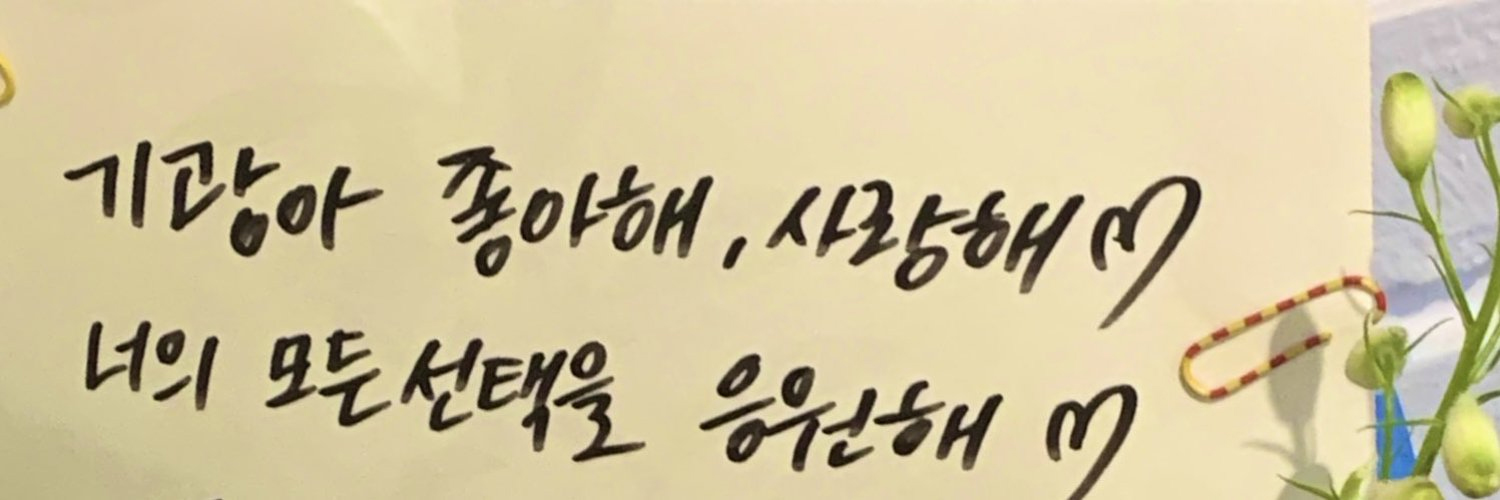 기광아 좋아해, 사랑해♡
너의 모든 선택을 응원해♡